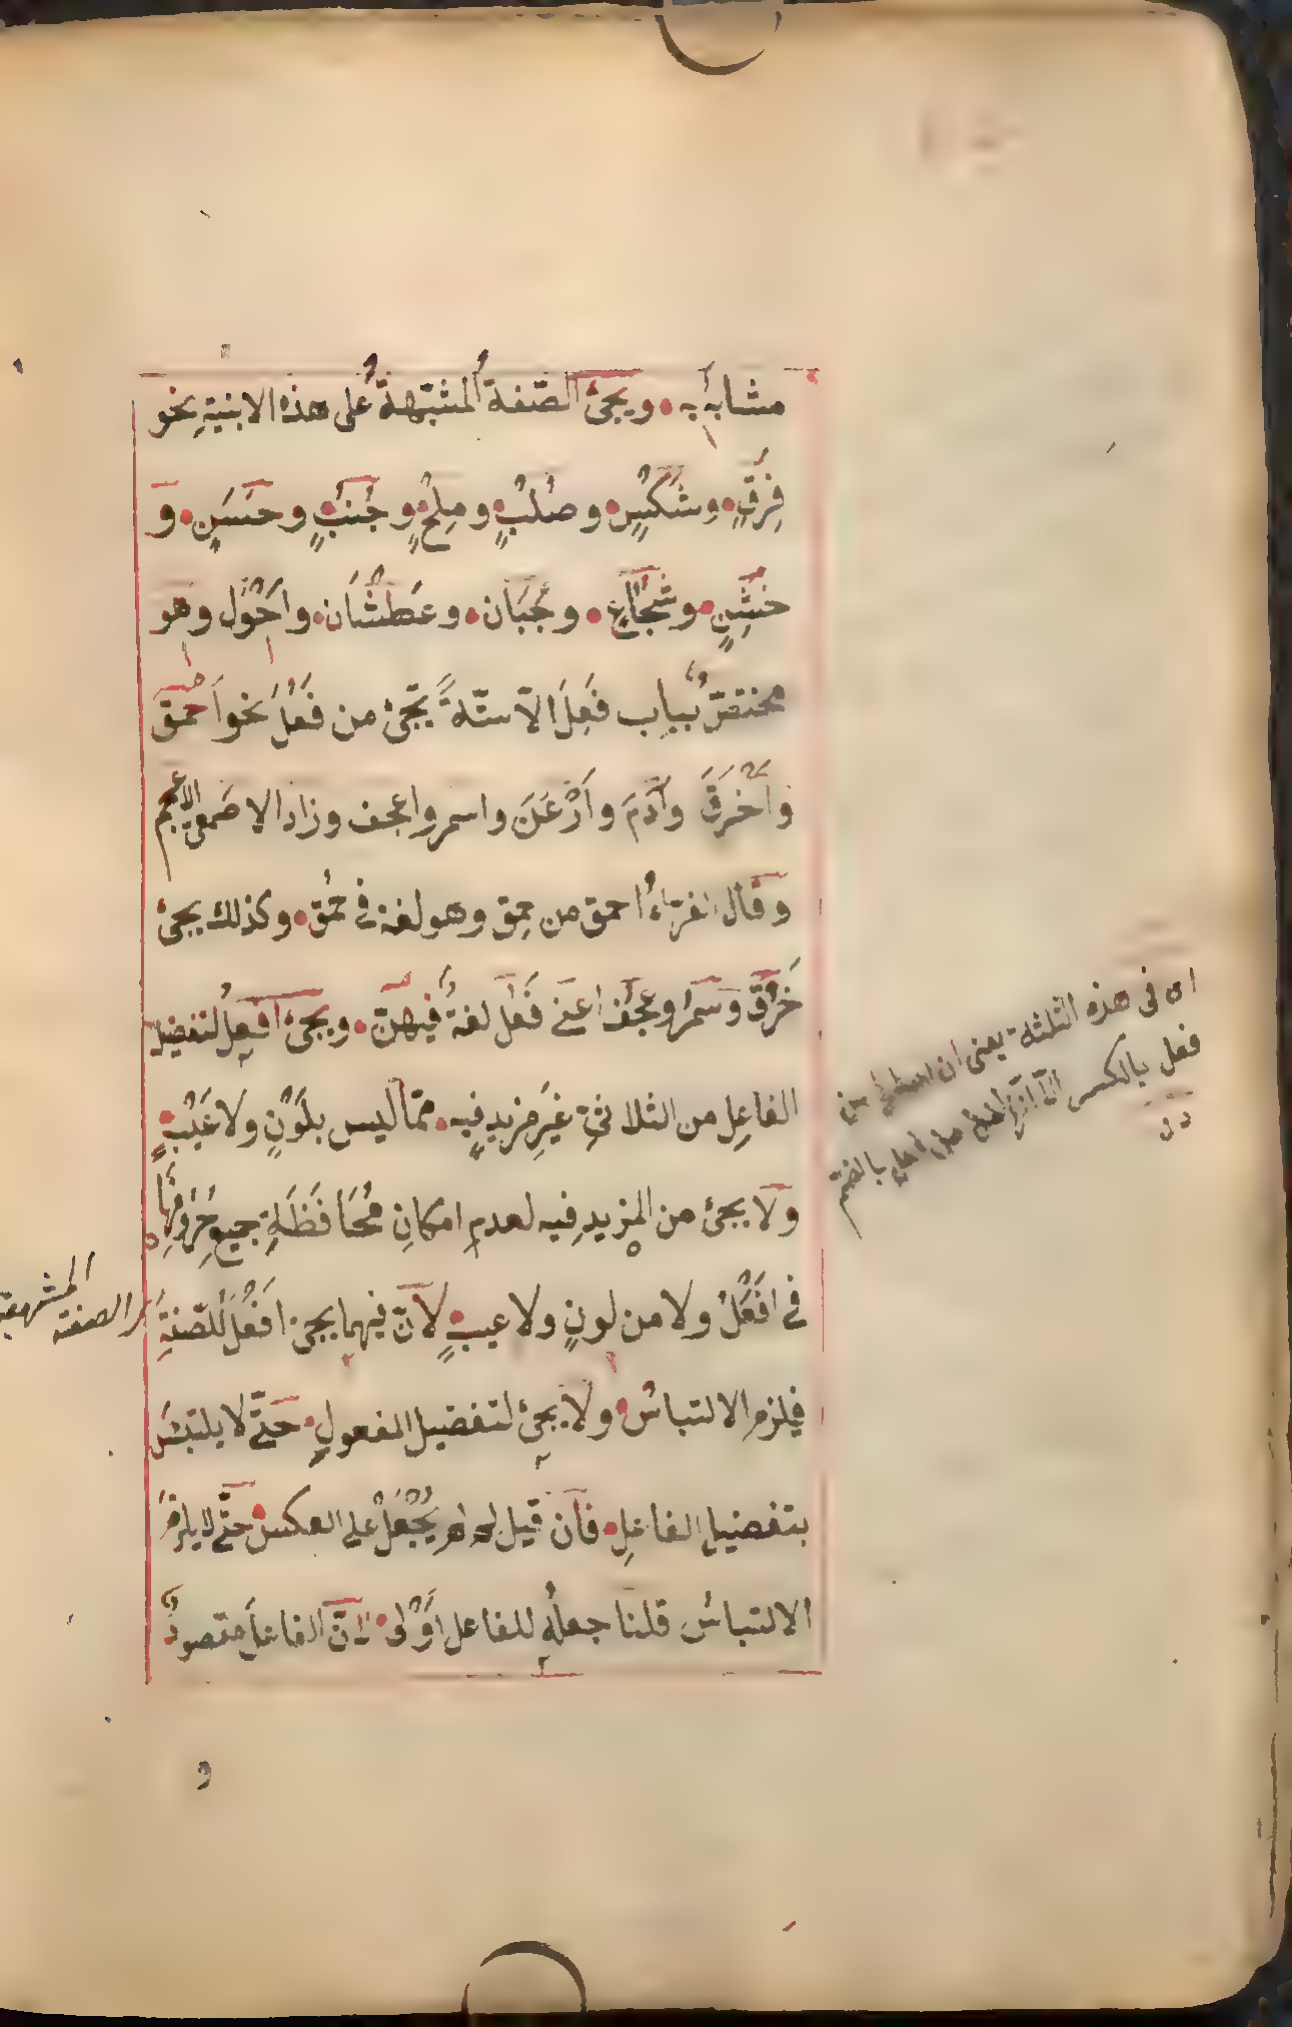 مشابه به ويجئ الصّفة المشبّهة على هذه الابنية نحو
فَرِقٍ وشَكُسٍ وصُلْبٍ ومِلْحٍ وجُنُبٍ وحَسَنٍ و
خَشِنٍ وشُجَاعٍ وجَبَان وعَطْشَان واَحْوَل وهو
مختصّ بباب فَعِلَ الاّ ستّةً يجئ من فَعُلَ نحو اَحْمَق
واَخْرَق واٰدَم واَرْعَن واسمر واعجف وزاد الاصمعي الاعجم
وقال الفرّاء احمق من حمِق وهو لغة في حمُق وكذلك يجئ
خَرِق وسَمِر وعَجِف اعني فَعِل لغةٌ فيهنّ ويجئ افعل لتفضيل
الفاعِلِ من الثلاثيِّ غيرِ مزيدٍ فيه ممّا ليس بلَوْنٍ ولا عَيْبٍ
ولا يجئ من المزيدِ فيه لعدم امكانِ مُحَافَظَةِ جميع حُرُوفِها
في اَفْعَلُ ولا من لونٍ ولا عيبٍ لاَنّ فيهما يجئ اَفْعَلُ للصّفةِ
فيلزم الالتباسُ ولا يجئ لتفضيل المفعولِ حتّى لا يلتبسَ
بتفضيل الفاعلِ فاَن قيل لم لم يُجْعَلْ على العكس حتّى لا يلزم
الالتباسُ قلنا جعلُه للفاعل اَوْلى لانّ الفاعلَ مقصودٌ
و
اى فى هذه الثلثة يعنى ان
فعل بالكسر بالضمّ
المشبهة
الصفة